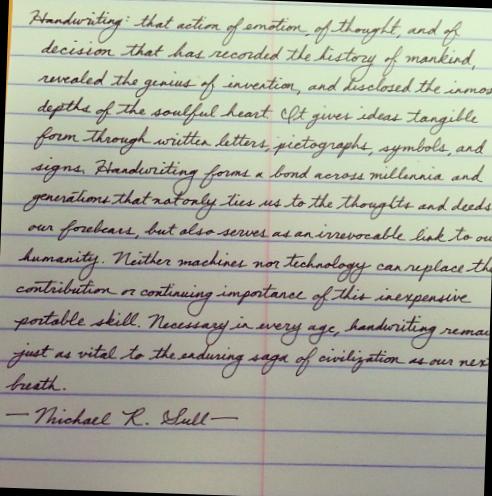 Handwriting: that action of emotion, of thought, and of
decision that has recorded the history of mankind,
revealed the genius of invention, and disclosed the inmos
depths of the soulful heart. It gives ideas tangible
form through written letters, pictographs, symbols, and
signs. Handwriting forms a bond across millennia and
generations that not only ties us to the thoughts and deeds
our forebears, but also serves as an irrevocable link to ou
humanity. Neither machines nor technology can replace th
contribution or continuing importance of this inexpensive
portable skill. Necessary in every age, handwriting remai
just as vital to the enduring saga of civilization as our nex
breath.
— Michael R. Sull —